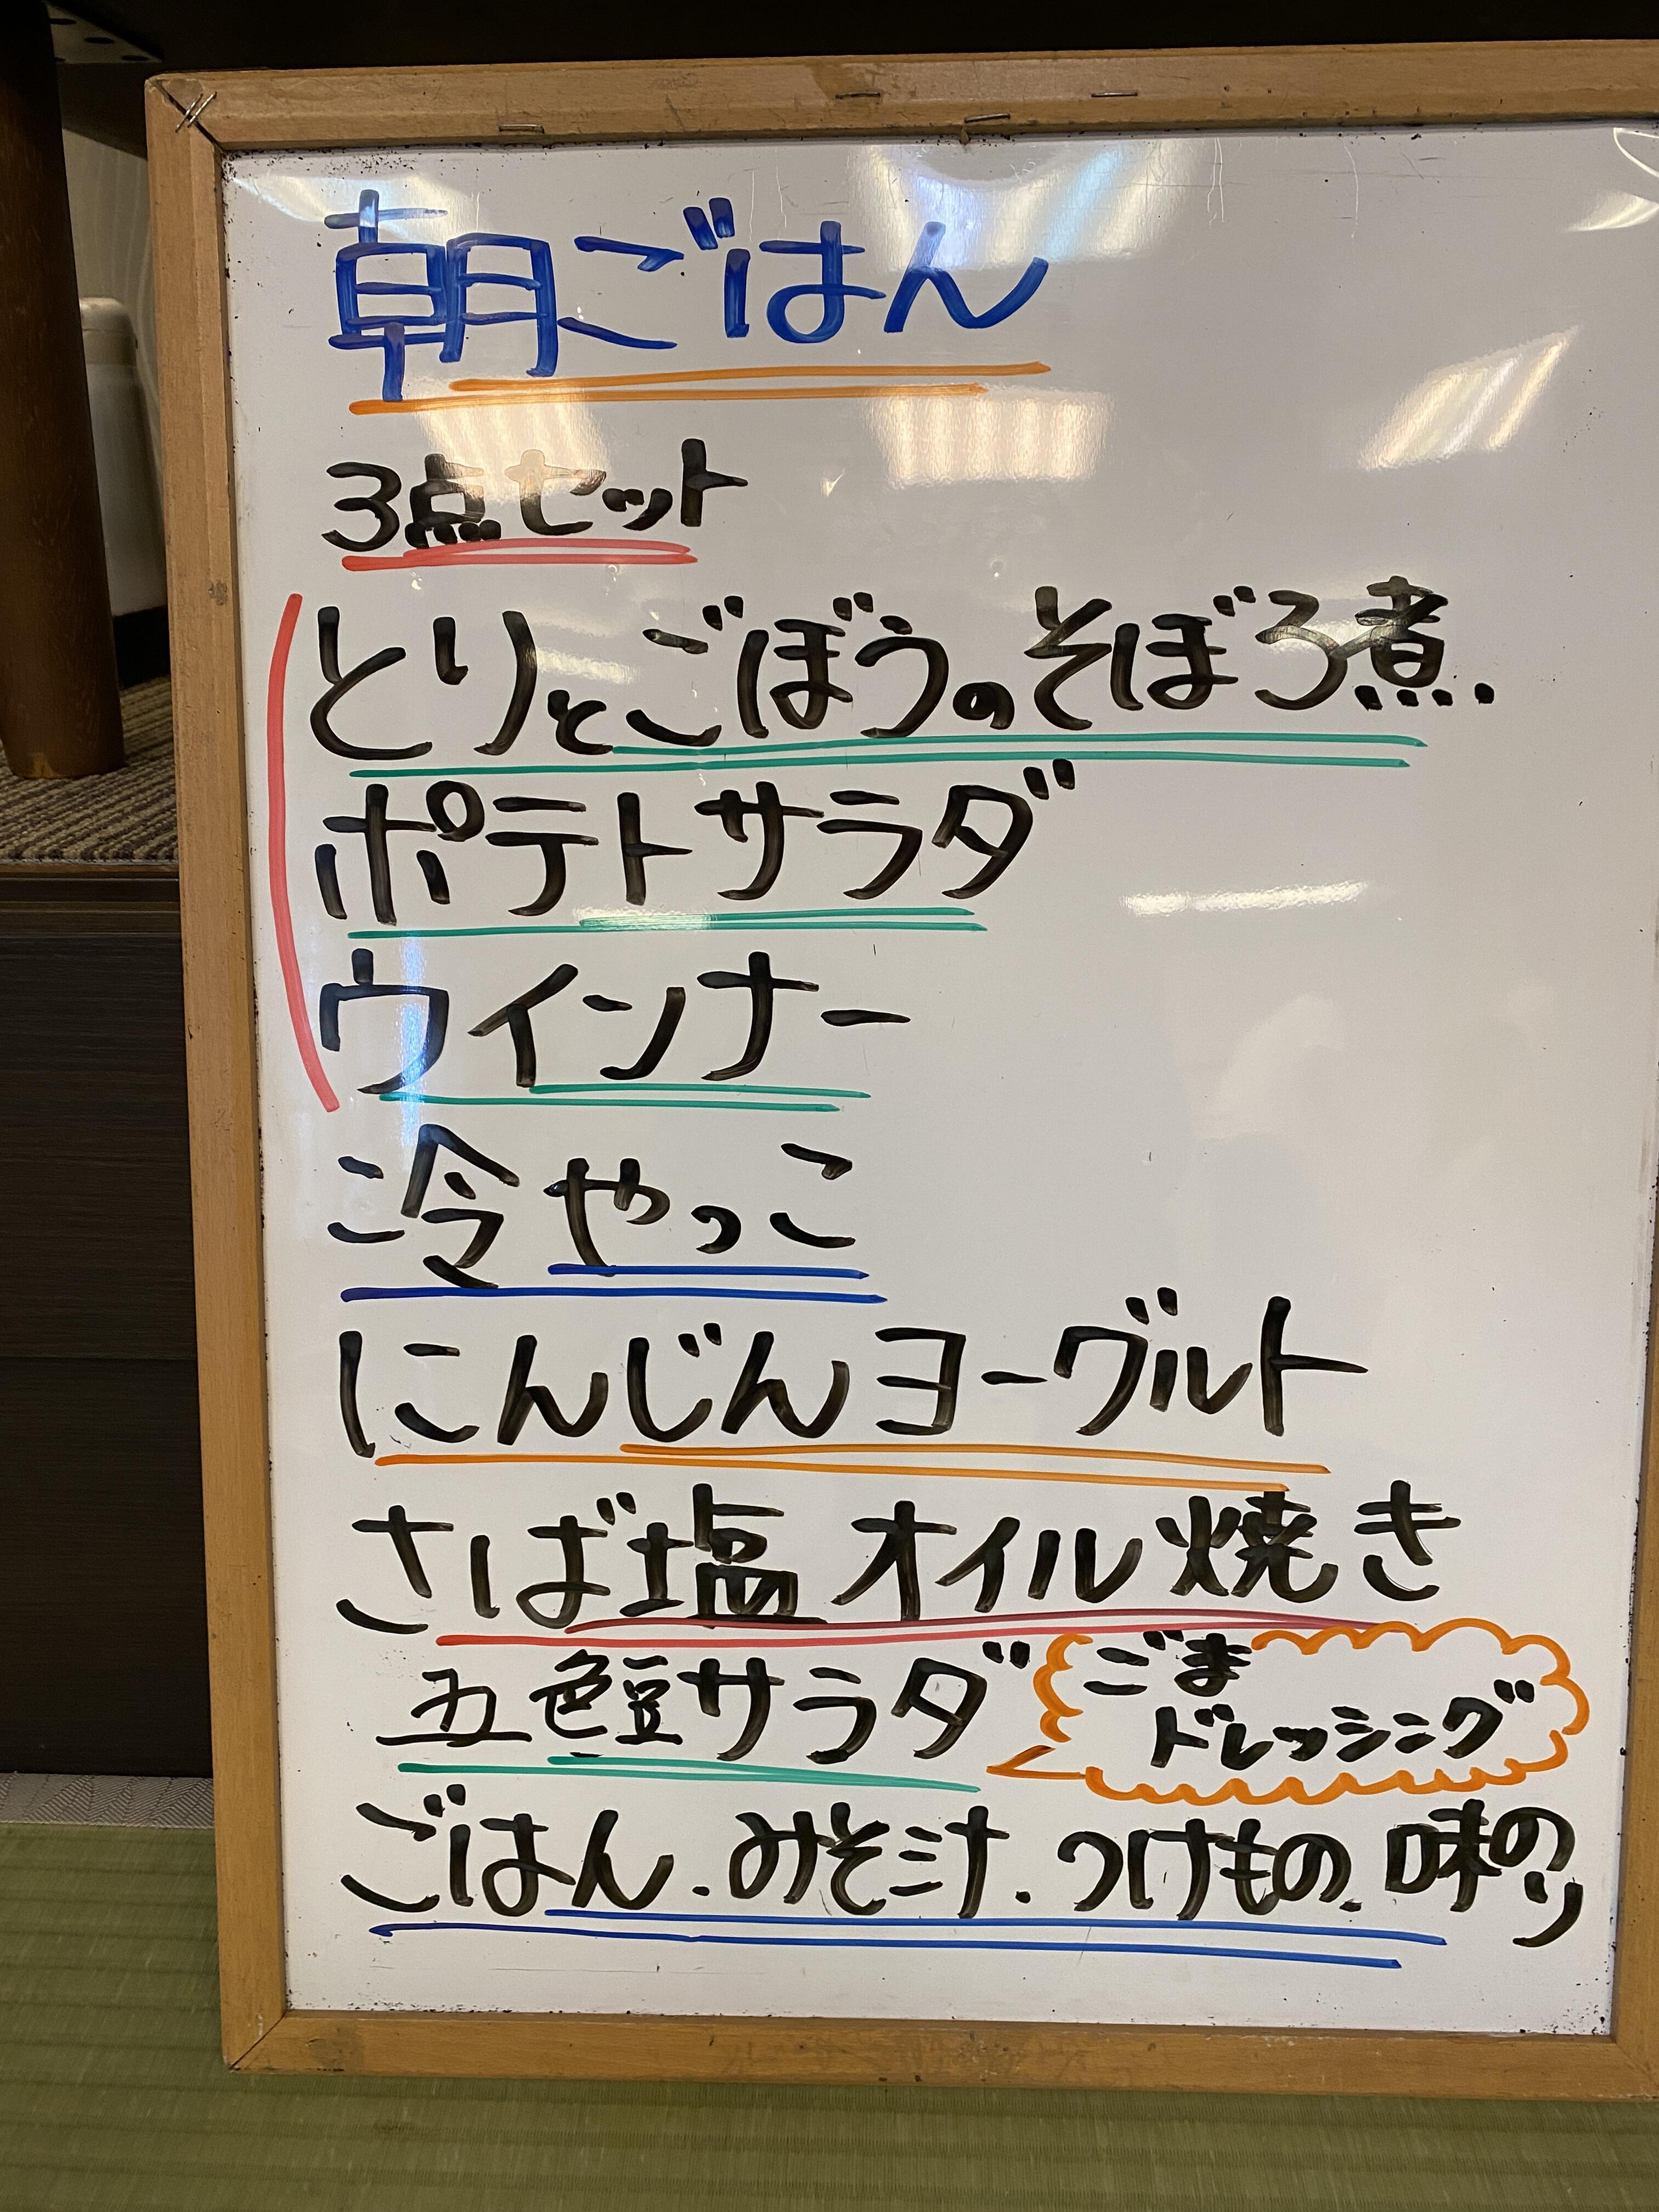 朝ごはん
3点セット
とりとごぼうのそぼろ煮.
ポテトサラダ
ウインナー
冷やっこ
にんじんヨーグルト
さば塩オイル焼き
五色豆サラダ ごま
ドレッシング
ごはん.みそ汁.つけもの.味のり